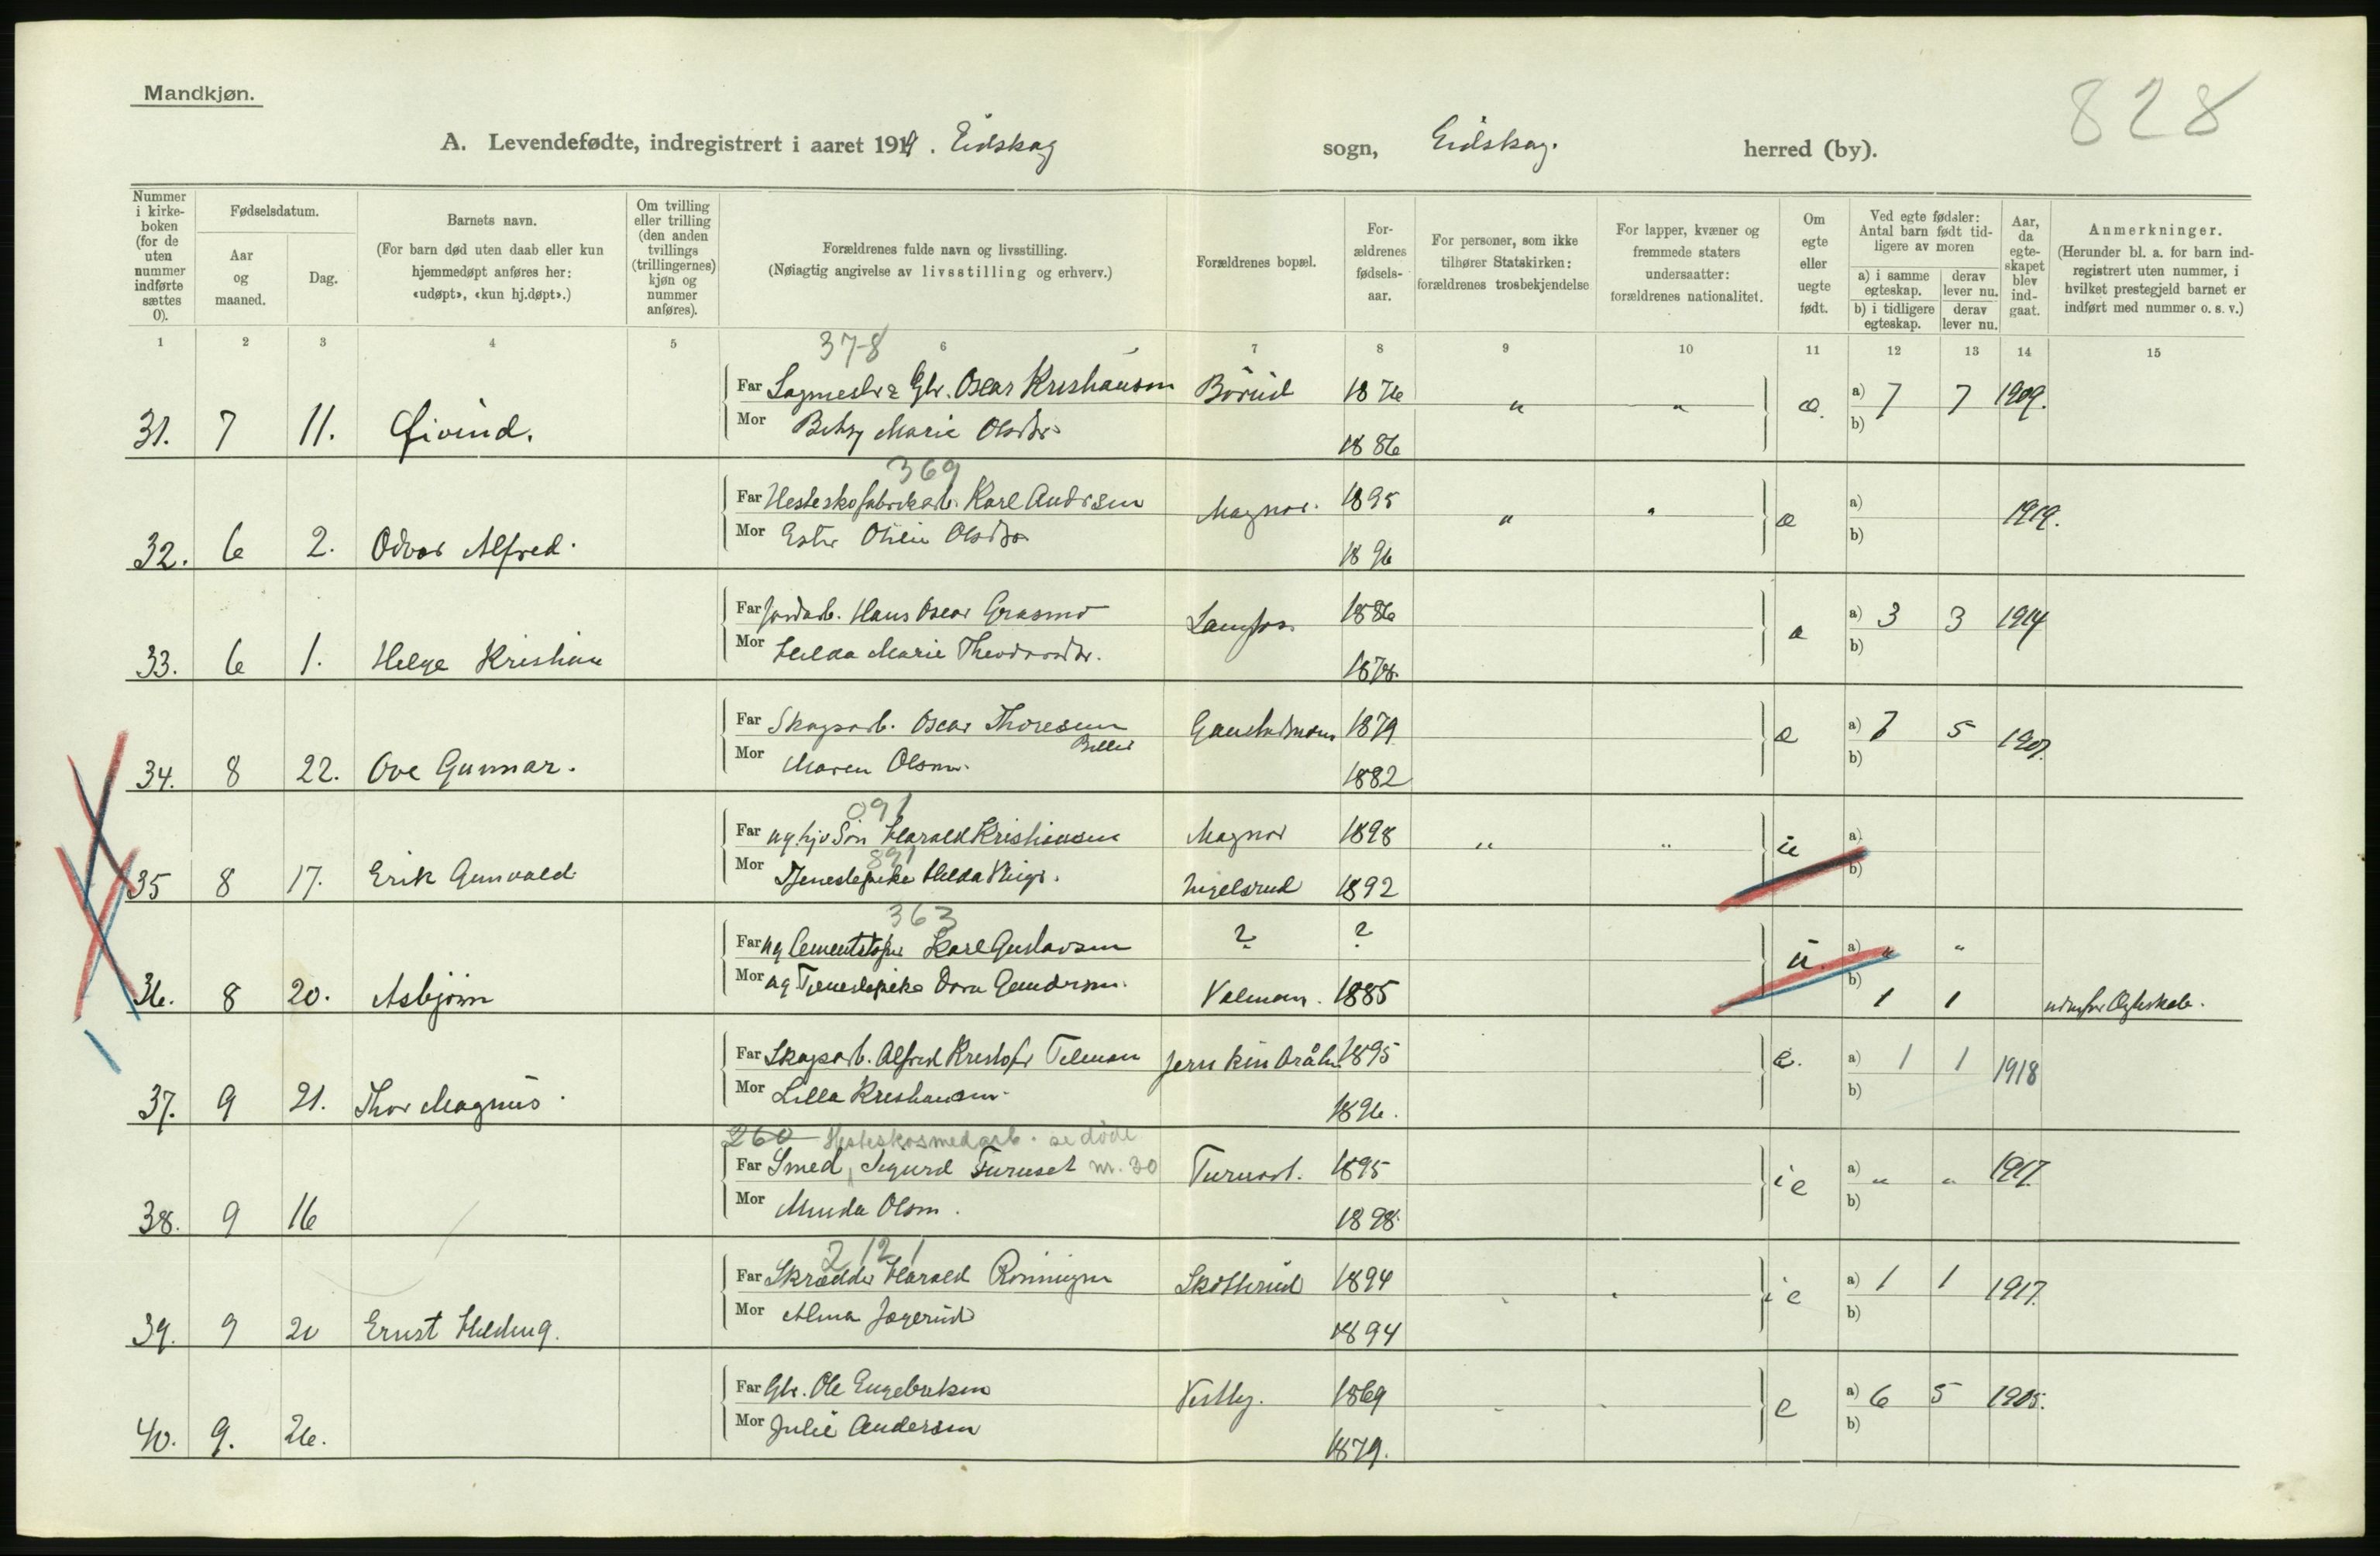 Mandkjøn.
828
A. Levendefødte, indregistrert i aaret 1919. Eidskog sogn, Eidskog. herred (by).
Nummer i kirke-boken (for de uten nummer indførte sættes 0).
Fødselsdatum.
Aar og maaned.
Dag.
Barnets navn.
(For barn død uten daab eller kun hjemmedøpt anføres her: «udøpt», «kun hj.døpt».)
Om tvilling eller trilling (den anden tvillings (trillingernes) kjøn og nummer anføres).
Forældrenes fulde navn og livsstilling.
(Nøiagtig angivelse av livsstilling og erhverv.)
Forældrenes bopæl.
For-ældrenes fødsels-aar.
For personer, som ikke tilhører Statskirken: forældrenes trosbekjendelse
For lapper, kvæner og fremmede staters undersaatter: forældrenes nationalitet.
Om egte eller uegte født.
Ved egte fødsler: Antal barn født tid-ligere av moren
a) i samme egteskap. derav lever nu.
b) i tidligere egteskap. derav lever nu.
Aar, da egte-skapet blev ind-gaat.
Anmerkninger.
(Herunder bl. a. for barn ind-registrert uten nummer, i hvilket prestegjeld barnet er indført med nummer o. s. v.)
1 2 3 4 5 6 7 8 9 10 11 12 13 14 15
378
Far Oscar Kristiansen Børud 1876 " " a) 7 7 1909.
31. 7 11. Øivind. Mor Betsy Marie Olsdtr 1886 b)
369
Far Hesteskofabrikarb. Karl Andersen Magnor. 1895 " " a) 1919.
32. 6 2. Odvar Alfred. Mor Ester Olsdtr 1896 b)
Far Jordarb. Hans Oscar Grasmo 1886 a) 3 3 1914
33. 6 1. Helge Kristian Mor Hilda Marie 1878. b)
Far Skogsarb. Oscar Thoresen 1879 a) 7 5 1907.
34. 8 22. Ove Gunnar. Mor Maren Olsen. 1882 b)
091
Far Harald Kristiansen Magnor 1898 " " u a)
891
35 8 17. Erik Gunvald Mor Tjenestepike Hilda Ingelsrud 1892 b)
363
Far ug Karl Gustavsen ? ? u. a) " "
36. 8 20. Asbjørn Mor ug Tjenestepike Dora Gundersen. 1885 b) 1 1
Far Skogsarb. Alfred Kristofer e. a) 1 1 1918
1895
37. 9 21. Thor Magnus. Mor Lilla Kristiansen. 1896. b)
260 Hesteskosmedarb. se døde
Far Smed, Sigurd Furuset nr. 30 1895 e a) " " 1917.
38. 9 16 Mor Minda Olsen. 1898. b)
2 12 1
Far Skrædder Harald Rønningen Skotterud 1894 e a) 1 1 1917.
39. 9 20 Ernst Hilding. Mor Alma Jegerud 1894 b)
Far Gbr. Ole Engebretsen Vestby. 1869 e a) 6 5 1905.
40. 9. 26. Mor Julie Andersen 1879. b)